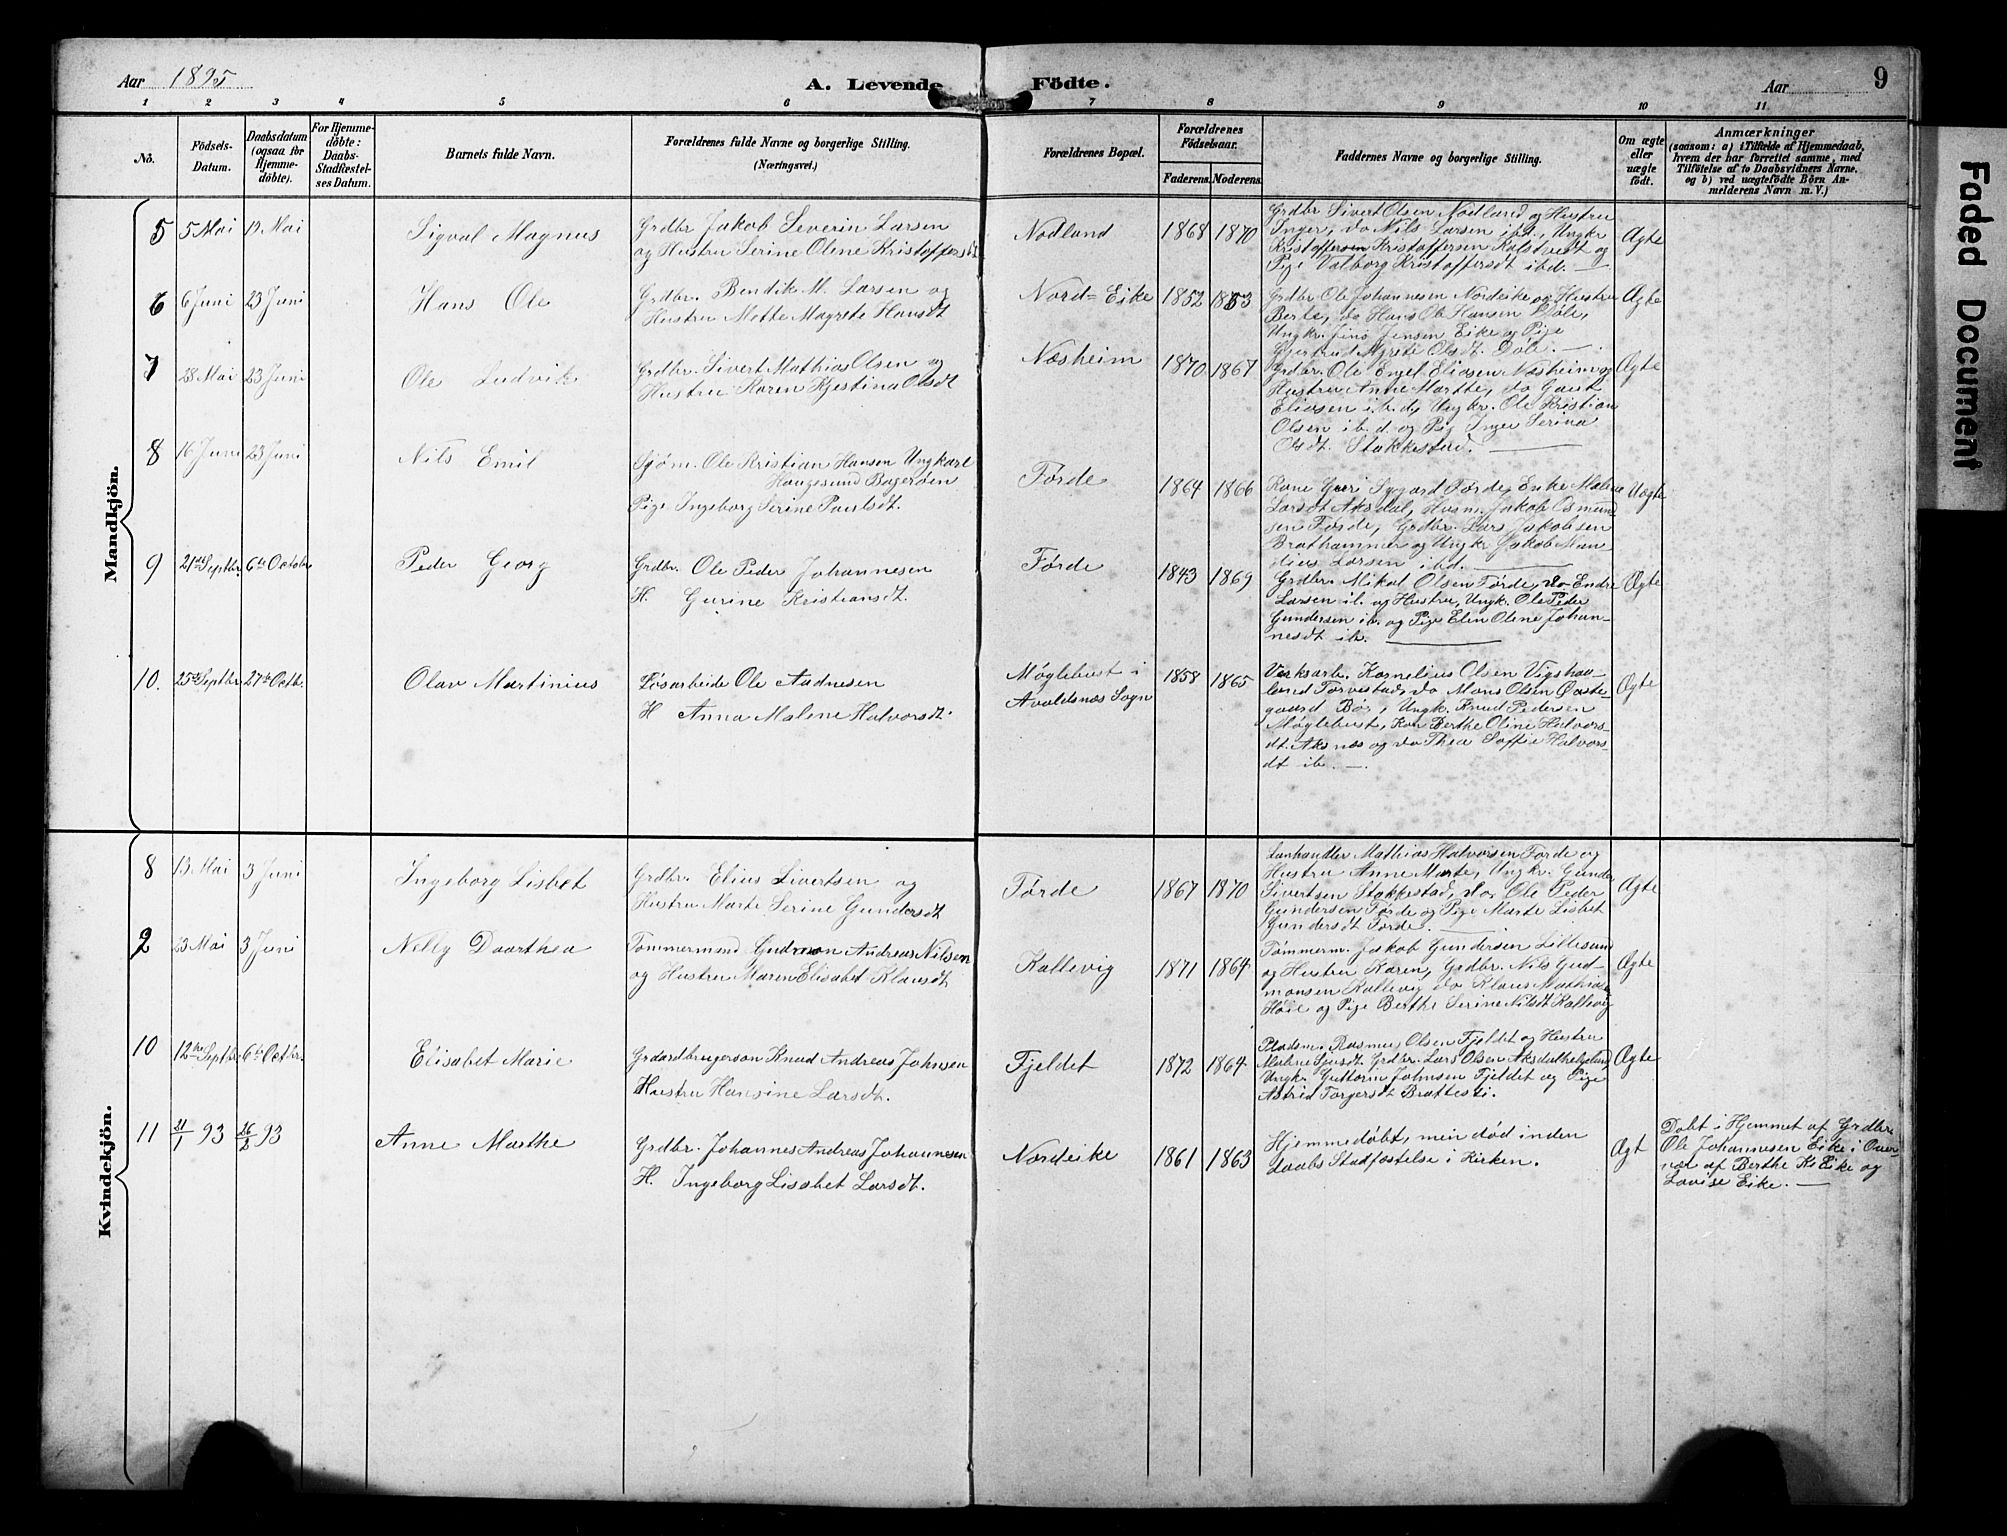 Aar 1895
A. Levende Födte.
Aar
9
1 2 3 4 5 6 7 8 9 10 11
No.
Födsels-Datum.
Daabsdatum (ogsaa for Hjemme-döbte).
For Hjemme-döbte: Daabs-Stadfæstel-ses Datum.
Barnets fulde Navn.
Forældrenes fulde Navne og borgerlige Stilling.
(Næringsvei.)
Forældrenes Bopæl.
Forældrenes Födselsaar.
Faderens. Moderens.
Faddernes Navne og borgerlige Stilling.
Om ægte eller uægte födt.
Anmærkninger
(saasom: a) i Tilfælde af Hjemmedaab,
hvem der har forrettet samme, med
Tilföielse af to Daabsvidners Navne,
og b) ved uægtefödte Börn An-
melderens Navn m. V.)
Faded Document
Mandkjön.
5 5 Mai 19 Mai Sigval Magnus
Grdbr Jakob Severin Larsen
og Hustru Serine Olene Kristoffersdt
Nodland 1868 1870
Grdbr Sivert Olsen Nodland og Hustru
Inger, do Nils Larsen ibd, Ungkr
Kristoffersen Kristoffersen Kolstvedt og
Pige Valborg Kristoffersdt ibd. —
Ægte
6 6 Juni 23 Juni Hans Ole
Grdbr. Bendik M. Larsen og
Hustru Mette Magrete Hansdt
Nord=Eike 1852 1853
Grdbr Ole Johannesen Nordeike og Hustru
Berte, do Hans Ole Hansen Døle,
Ungkr. Jens Jensen Eike og Pige
Gjertrud Agrete Olsdt. Døle. —
Ægte
7 28 Mai 23 Juni Ole Ludvik
Grdbr. Sivert Mathias Olsen og
Hustru Karen Kjestina Olsdt
Næsheim 1870 1867
Grdbr. Ole Engel Eliasen Næsheim og
Hustru Anne Marthe, do Gaut
Eliasen i.b.d, Ungkr. Ole Kristian
Olsen ib.d. og Pig Inger Serina
Olsdt. Stakkestad. —
Ægte
8 16 Juni 23 Juni Nils Emil
Sjøm. Ole Kristian Hansen Ungkarl
Haugesund
Pige Ingeborg Serine Paulsdt.
Førde 1864 1866
Kone Sygard Førde, Enke Malene
Larsdt Aksdal, Husm. Jakob Osmund
sen Førde, Grdbr. Lars Jakobsen
Brathammer og Ungkr Jakob Nan
dius Larsen ibd. —
Uægte
9 21de Septbr. 6te Octobr Peder Georg
Grdbr. Ole Peder Johannesen
H. Gurine Kristiansdt.
Førde 1843 1869
Grdbr. Mikal Olsen Førde, do Endre
Larsen ib. og Hustru, Ungk. Ole Peder
Gundersen ib. og Pige Elen Olene Johan-
nesdt ib. —
Ægte
10. 25de Septbr. 27de Octb. Olav Martinius
Løsarbeide Ole Aadnesen
H Anna Malene Halvorsdt.
Møglebust i
Avaldsnæs Sogn
1858 1865
Verksarb. Kornelius Olsen Vigshau-
land Torvestad, do Mons Olsen Øste-
gaard Bø, Ungk. Knud Pedersen
Møglebust, Kon Berthe Oline Halvors-
dt. Aksnæs og do Thea Soffie Halvors-
dt ib. —
Ægte
Kvindekjön.
8 13 Mai 3 Juni Ingeborg Lisbet
Grdbr. Elius Sivertsen og
Hustru Marte Serine Gundersdt
Førde 1867 1870
Lanhandler Mathias Halvorsen Førde og
Hustru Anne Marte, Ungkr. Gunder
Sivertsen Stakkestad, do. Ole Peder
Gundersen Førde og Pige Marte Lisbet
Gundersdt Førde. —
Ægte
9 23 Mai 3 Juni Nelly Doorthea
Tømmermand Gudmon Andreas Nilsen
og Hustru Maren Elisabet Klausdt
Kallevig 1871 1864
Tømmerm. Jakob Gundersen Lillesund
og Hustru Karen, Grdbr. Nils Gud-
monsen Kallevig do Klaus Mathias
Høie og Pige Berthe Serine Nilsdt Kallevig
Ægte
10 12te Septbr 6te Octbr. Elisabet Marie
Grdardbrugerson Knud Andreas Johnsen
Hustru Hansine Larsdt.
Fjeldet 1872 1864.
Pladsm. Rasmus Olsen Fjeldet og Hustru
Malene Sjursdt. Grdbr. Lars Olsen Aksdalhelgeland,
Ungk. Guttorm Johnsen Fjeldet og Pige
Astrid Torgersdt Brattesti.
Ægte
11 21/1 93 26/2 93 Anne Marthe
Grdbr. Johannes Andreas Johannesen
H. Ingeborg Lisabet Larsdt.
Nordeike 1861 1863
Hjemmedøbt, men død inden
Daabs Stadfæstelse i Kirken.
Ægt
Døbt i Hjemmet af Grdbr
Ole Johannesen Eike i Over-
vær af Berthe K Eike og
Lovise Eike. —